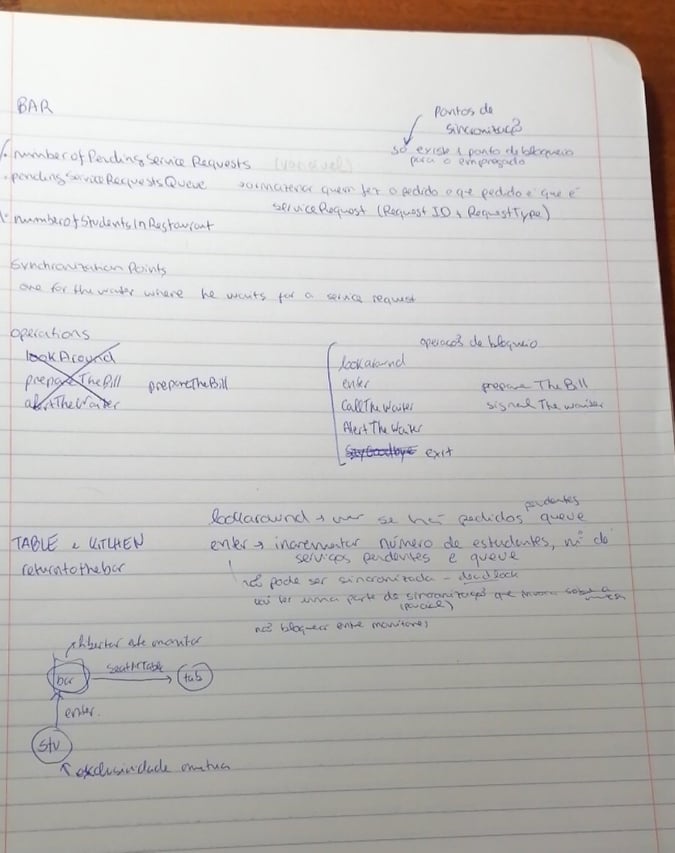 BAR
Pontos de
sincronizaçã
só existe 1 ponto de bloqueio
para o empregado
. numberofPendingServiceRequests (variável)
. pendingServiceRequestsQueue quem fez o pedido e que pedido é que é
serviceRequest (Request ID + RequestType)
. numberofStudentsInRestaurant
Synchronization Points
one for the waiter where he waits for a service request
operations
lookAround
prepareTheBill prepareTheBill
alertTheWaiter
operações de bloqueio
lookaround
enter prepare The Bill
CallTheWaiter signal The waiter
Alert The Waiter
SayGoodbye exit
TABLE e KITCHEN
returntothebar
lookaround → ver se há pedidos pendentes queue
enter → incrementar número de estudantes, nº de
serviços pendentes e queue
não pode ser sincronizada - deadlock
vai ter uma parte de sincronização que
(parcial)
não bloquear entre monitores
libertar este monitor
bar seatAtTable tab
enter.
stu
exclusividade mutua